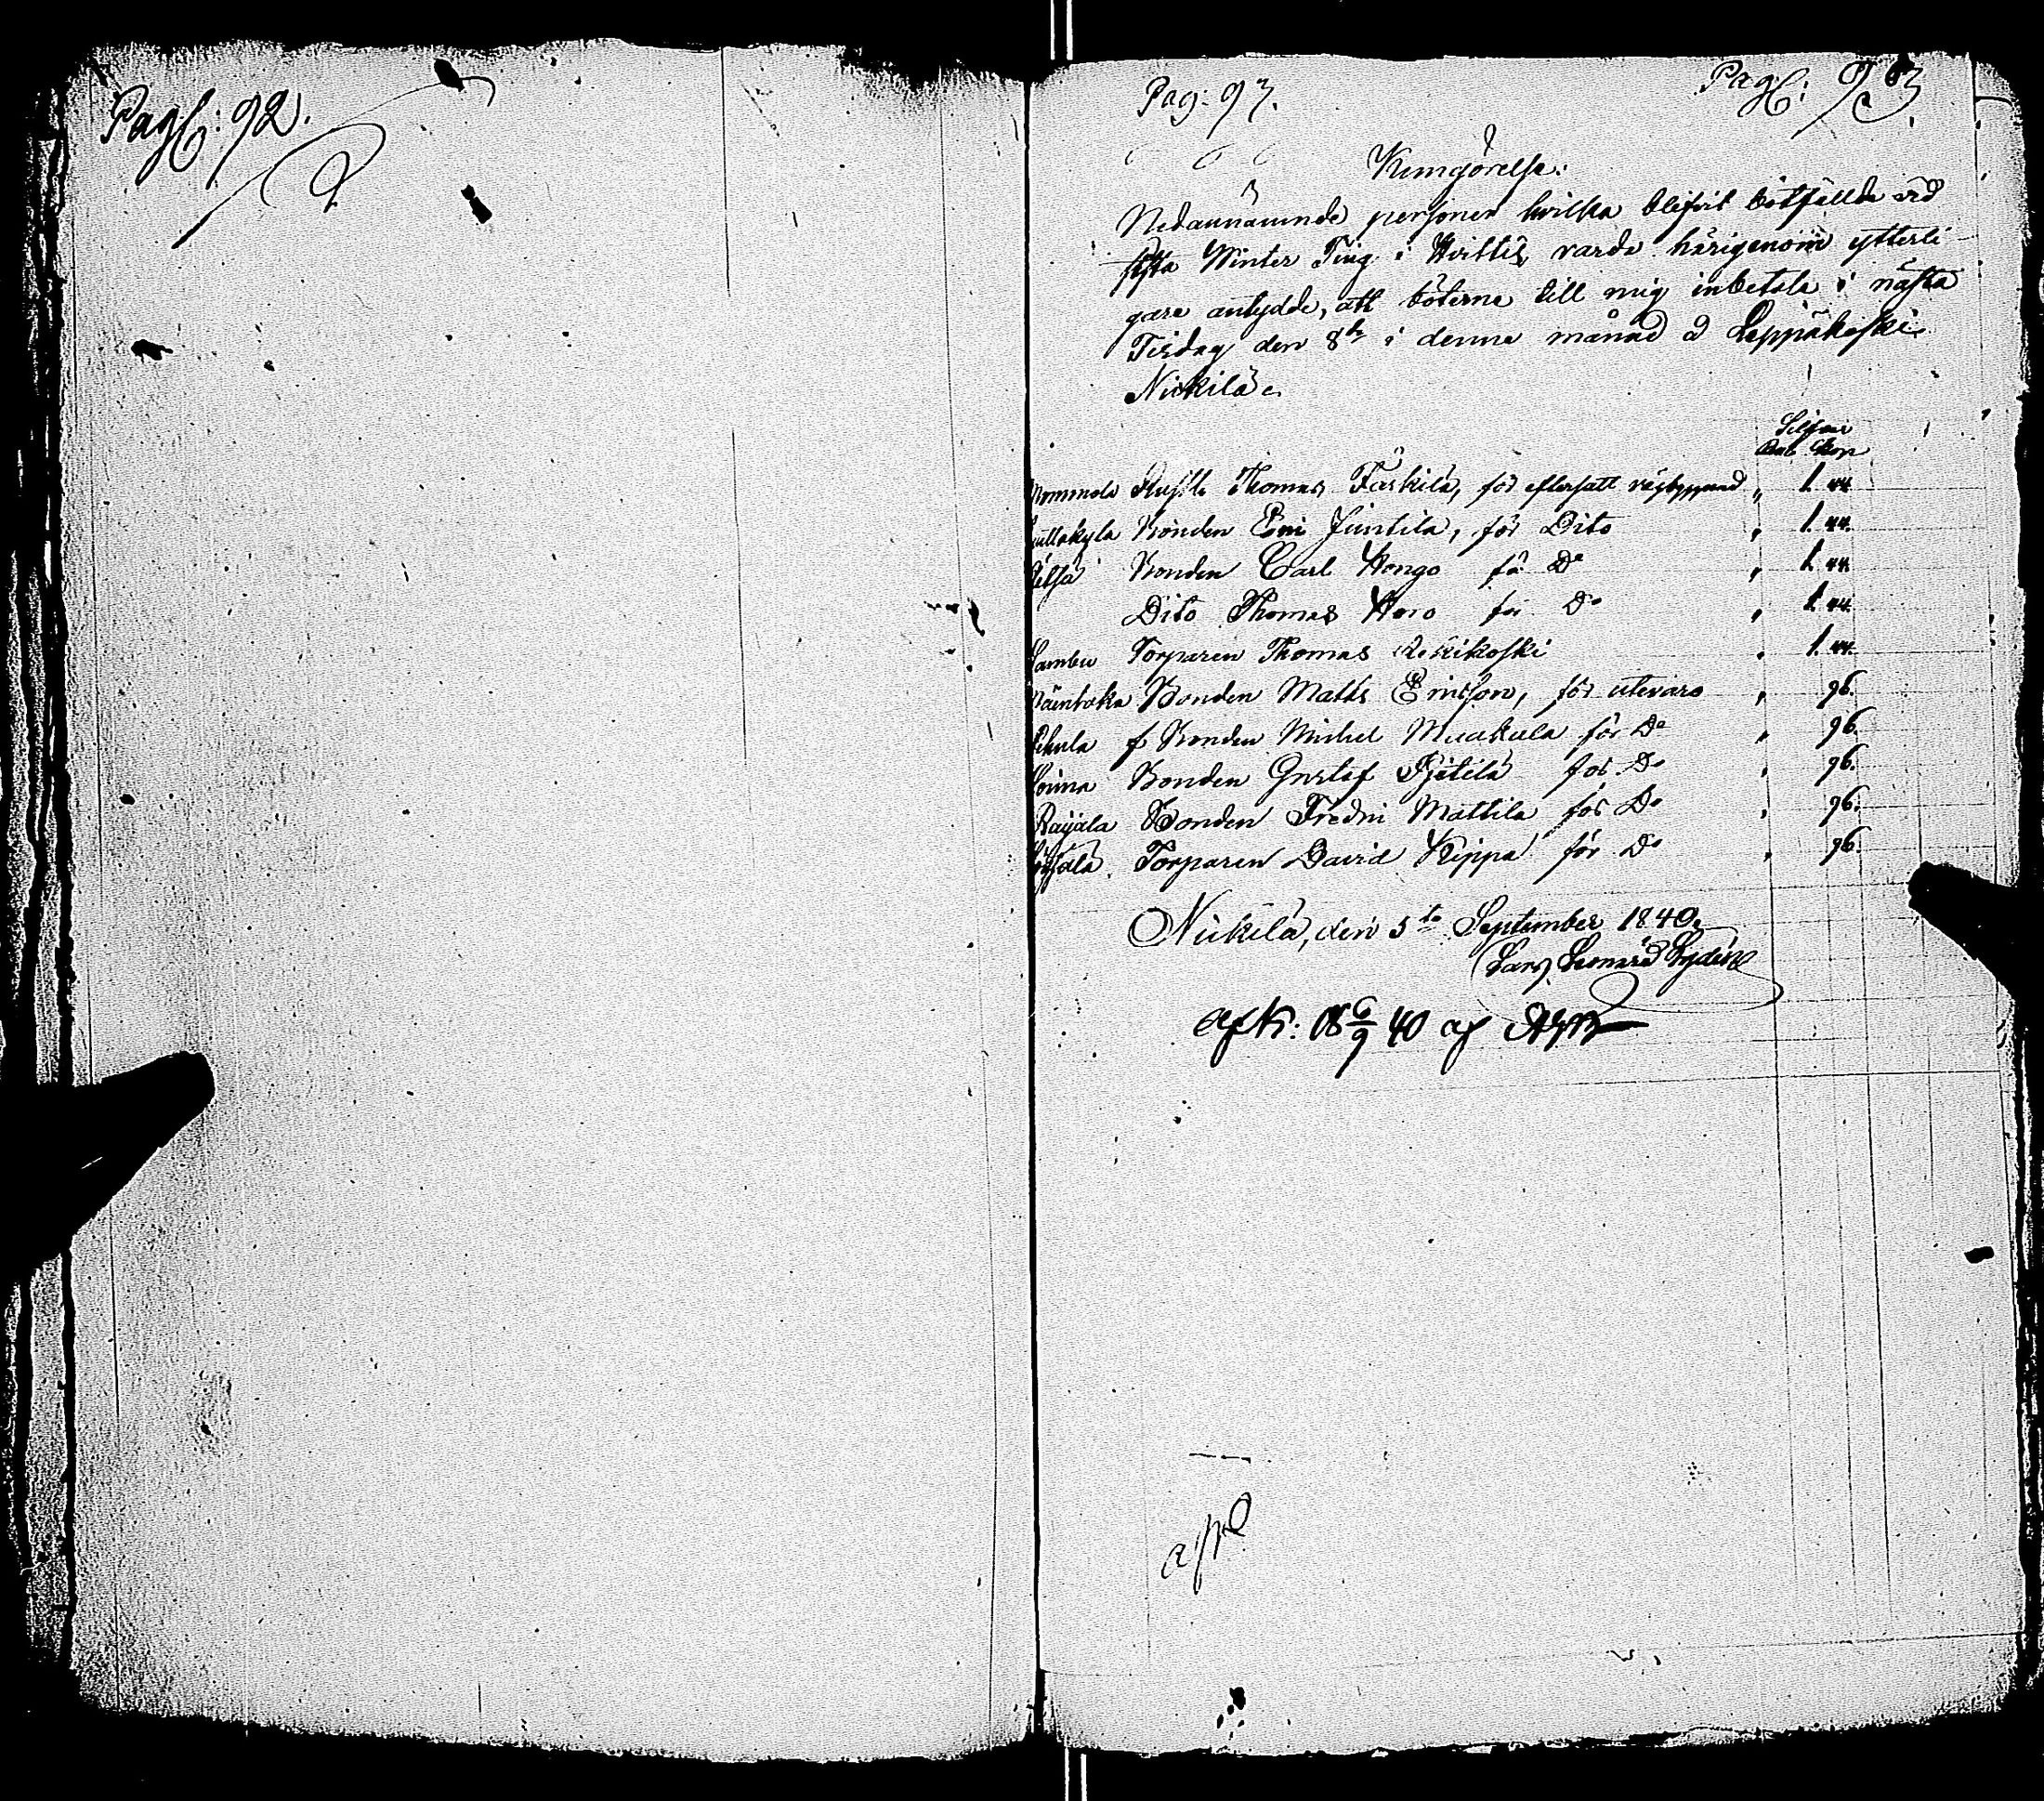 Pag: 92.
Pag: 93.
Pag: 93.
Kungörelse.
Nedannämnde personer hvilka blifvit bötfällde vid
sista Winter Ting i Hvittis, varda härigenom ytterli-
gare antydde, att böterne till mig inbetala i nästa
Tisdag den 8de i denna månad å Leppäkoski
Nickilä.
Silfver
Rub. Kop
Thomas Faskila, för eftersatt vägbyggnad " 1. 44.
Bonden Eric Juntila, för Dito " 1. 44.
Bonden Carl Hongo för Do " 1. 44.
Dito Thomas Horo för Do " 1. 44.
Torparen Thomas " 1. 44.
Bonden Matts Ericsson, för utevaro " 96.
f. Bonden Michel för Do " 96.
Bonden Gustaf för Do " 96.
Raijala Bonden Fredric Mattila för Do " 96.
Torparen David för Do " 96.
Nickilä, den 5te September 1840.
Lars Leonard Lydén
18 6/9 40 af